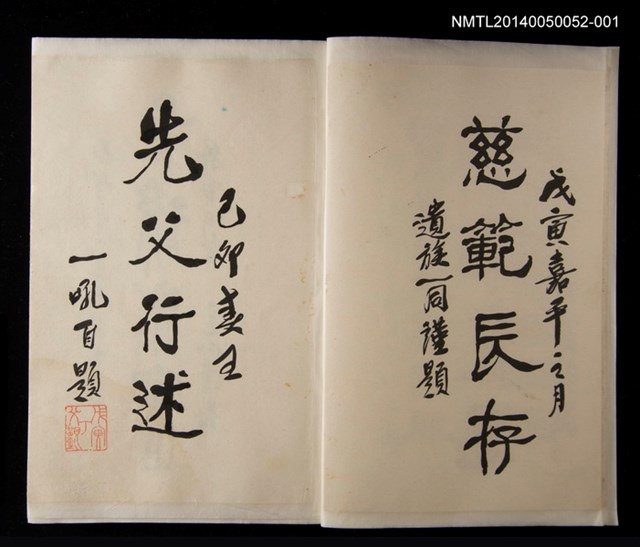 NMTL20140050052-001
戊寅嘉平之月
慈範長存
遺族一同謹題
己卯春王
先父行述
一吼自題